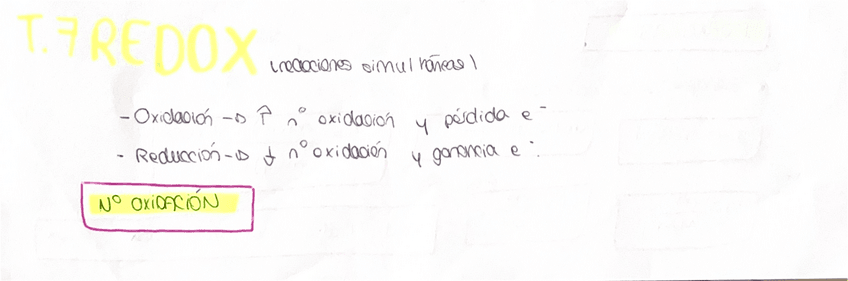 T.7 REDOX (reacciones simultáneas)
- Oxidación → ↑ nº oxidación y pérdida e⁻
- Reducción → ↓ nº oxidación y ganancia e⁻.
Nº OXIDACIÓN